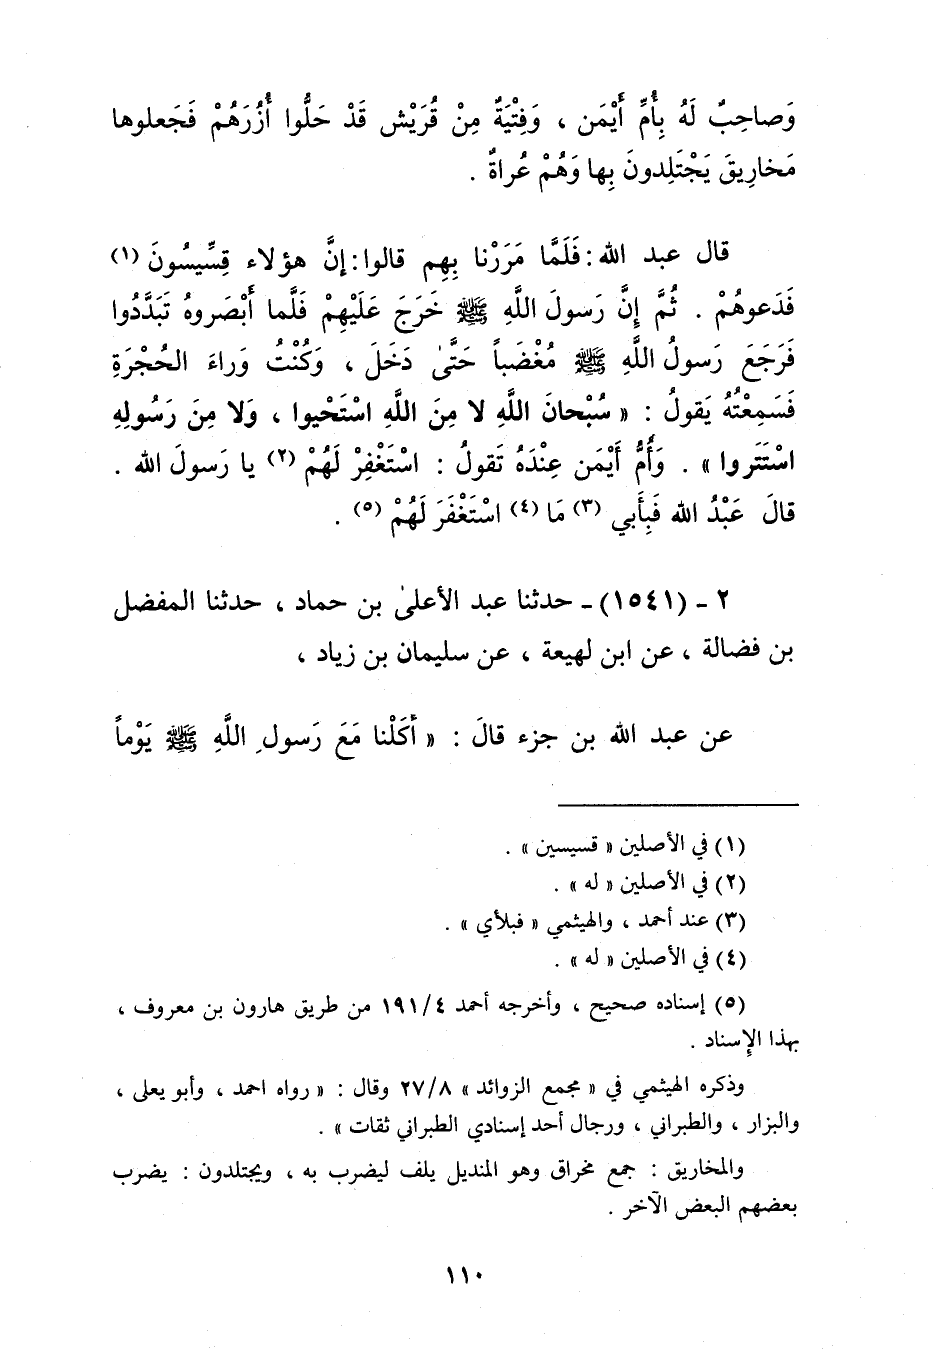 وَصاحِبٌ لَهُ بِأُمِّ أَيْمَن ، وَفِتْيَةٌ مِنْ قُرَيْش قَدْ حَلُّوا أُزُرَهُمْ فَجَعلوها
مَخارِيقَ يَجْتَلِدونَ بِها وَهُمْ عُراةٌ .
قال عبد الله : فَلَمَّا مَرَرْنا بِهِم قالوا : إنَّ هؤلاء قِسِّيسُونَ (١)
فَدَعوهُمْ . ثُمَّ إِنَّ رَسولَ اللَّهِ ﷺ خَرَجَ عَلَيْهِمْ فَلَّما أَبْصَروهُ تَبَدَّدُوا
فَرَجَعَ رَسولُ اللَّهِ ﷺ مُغْضَباً حَتَّىٰ دَخَلَ ، وَكُنْتُ وَراءَ الحُجْرَةِ
فَسَمِعْتُهُ يَقولُ : « سُبْحانَ اللَّهِ لا مِنَ اللَّهِ اسْتَحْيوا ، وَلا مِنَ رَسُولِهِ
اسْتَتَروا » . وَأُمُّ أَيْمَن عِنْدَهُ تَقولُ : اسْتَغْفِرْ لَهُمْ (٢) يا رَسولَ الله .
قالَ عَبْدُ الله فَبِأَبي (٣) مَا (٤) اسْتَغْفَرَ لَهُمْ (٥) .
٢ - (١٥٤١) - حدثنا عبد الأعلىٰ بن حماد ، حدثنا المفضل
بن فضالة ، عن ابن لهيعة ، عن سليمان بن زياد ،
عن عبد الله بن جزء قالَ : « أَكَلْنا مَعَ رَسولِ اللَّهِ ﷺ يَوْماً
(١) في الأصلين « قسيسين » .
(٢) في الأصلين « له » .
(٣) عند أحمد ، والهيثمي « فبلأي » .
(٤) في الأصلين « له » .
(٥) إسناده صحيح ، وأخرجه أحمد ٤/ ١٩١ من طريق هارون بن معروف ،
بهذا الإسناد .
وذكره الهيثمي في « مجمع الزوائد » ٨/ ٢٧ وقال : « رواه احمد ، وأبو يعلى ،
والبزار ، والطبراني ، ورجال أحد إسنادي الطبراني ثقات » .
والمخاريق : جمع مخراق وهو المنديل يلف ليضرب به ، ويجتلدون : يضرب
بعضهم البعض الآخر .
١١٠